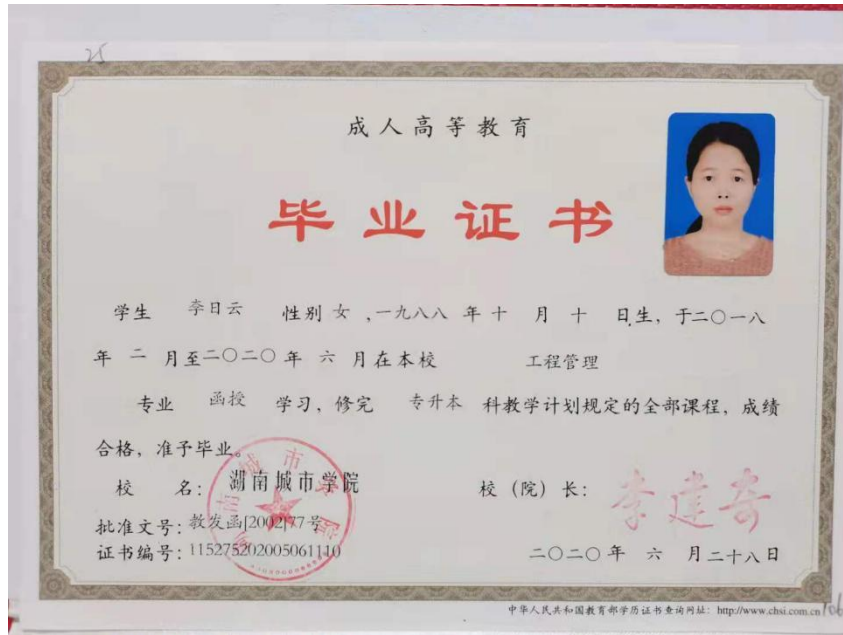 25
成人高等教育
毕业证书
学生 李日云 性别 女 ,一九八八 年 十 月 十 日生，于二〇一八
年 二 月至二〇二〇年 六 月在本校 工程管理
专业 函授 学习，修完 专升本 科教学计划规定的全部课程，成绩
合格，准予毕业。
校 名：湖南城市学院 校（院）长：李建奇
湖南城市学院
批准文号：教发函[2002]77号
证书编号：115275202005061110 二〇二〇年 六 月二十八日
中华人民共和国教育部学历证书查询网址：http://www.chsi.com.cn